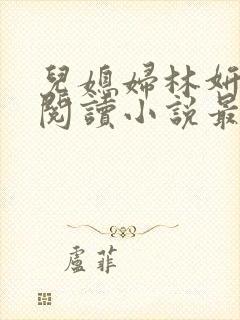 兒媳婦林妍
閱讀小說最
盧菲